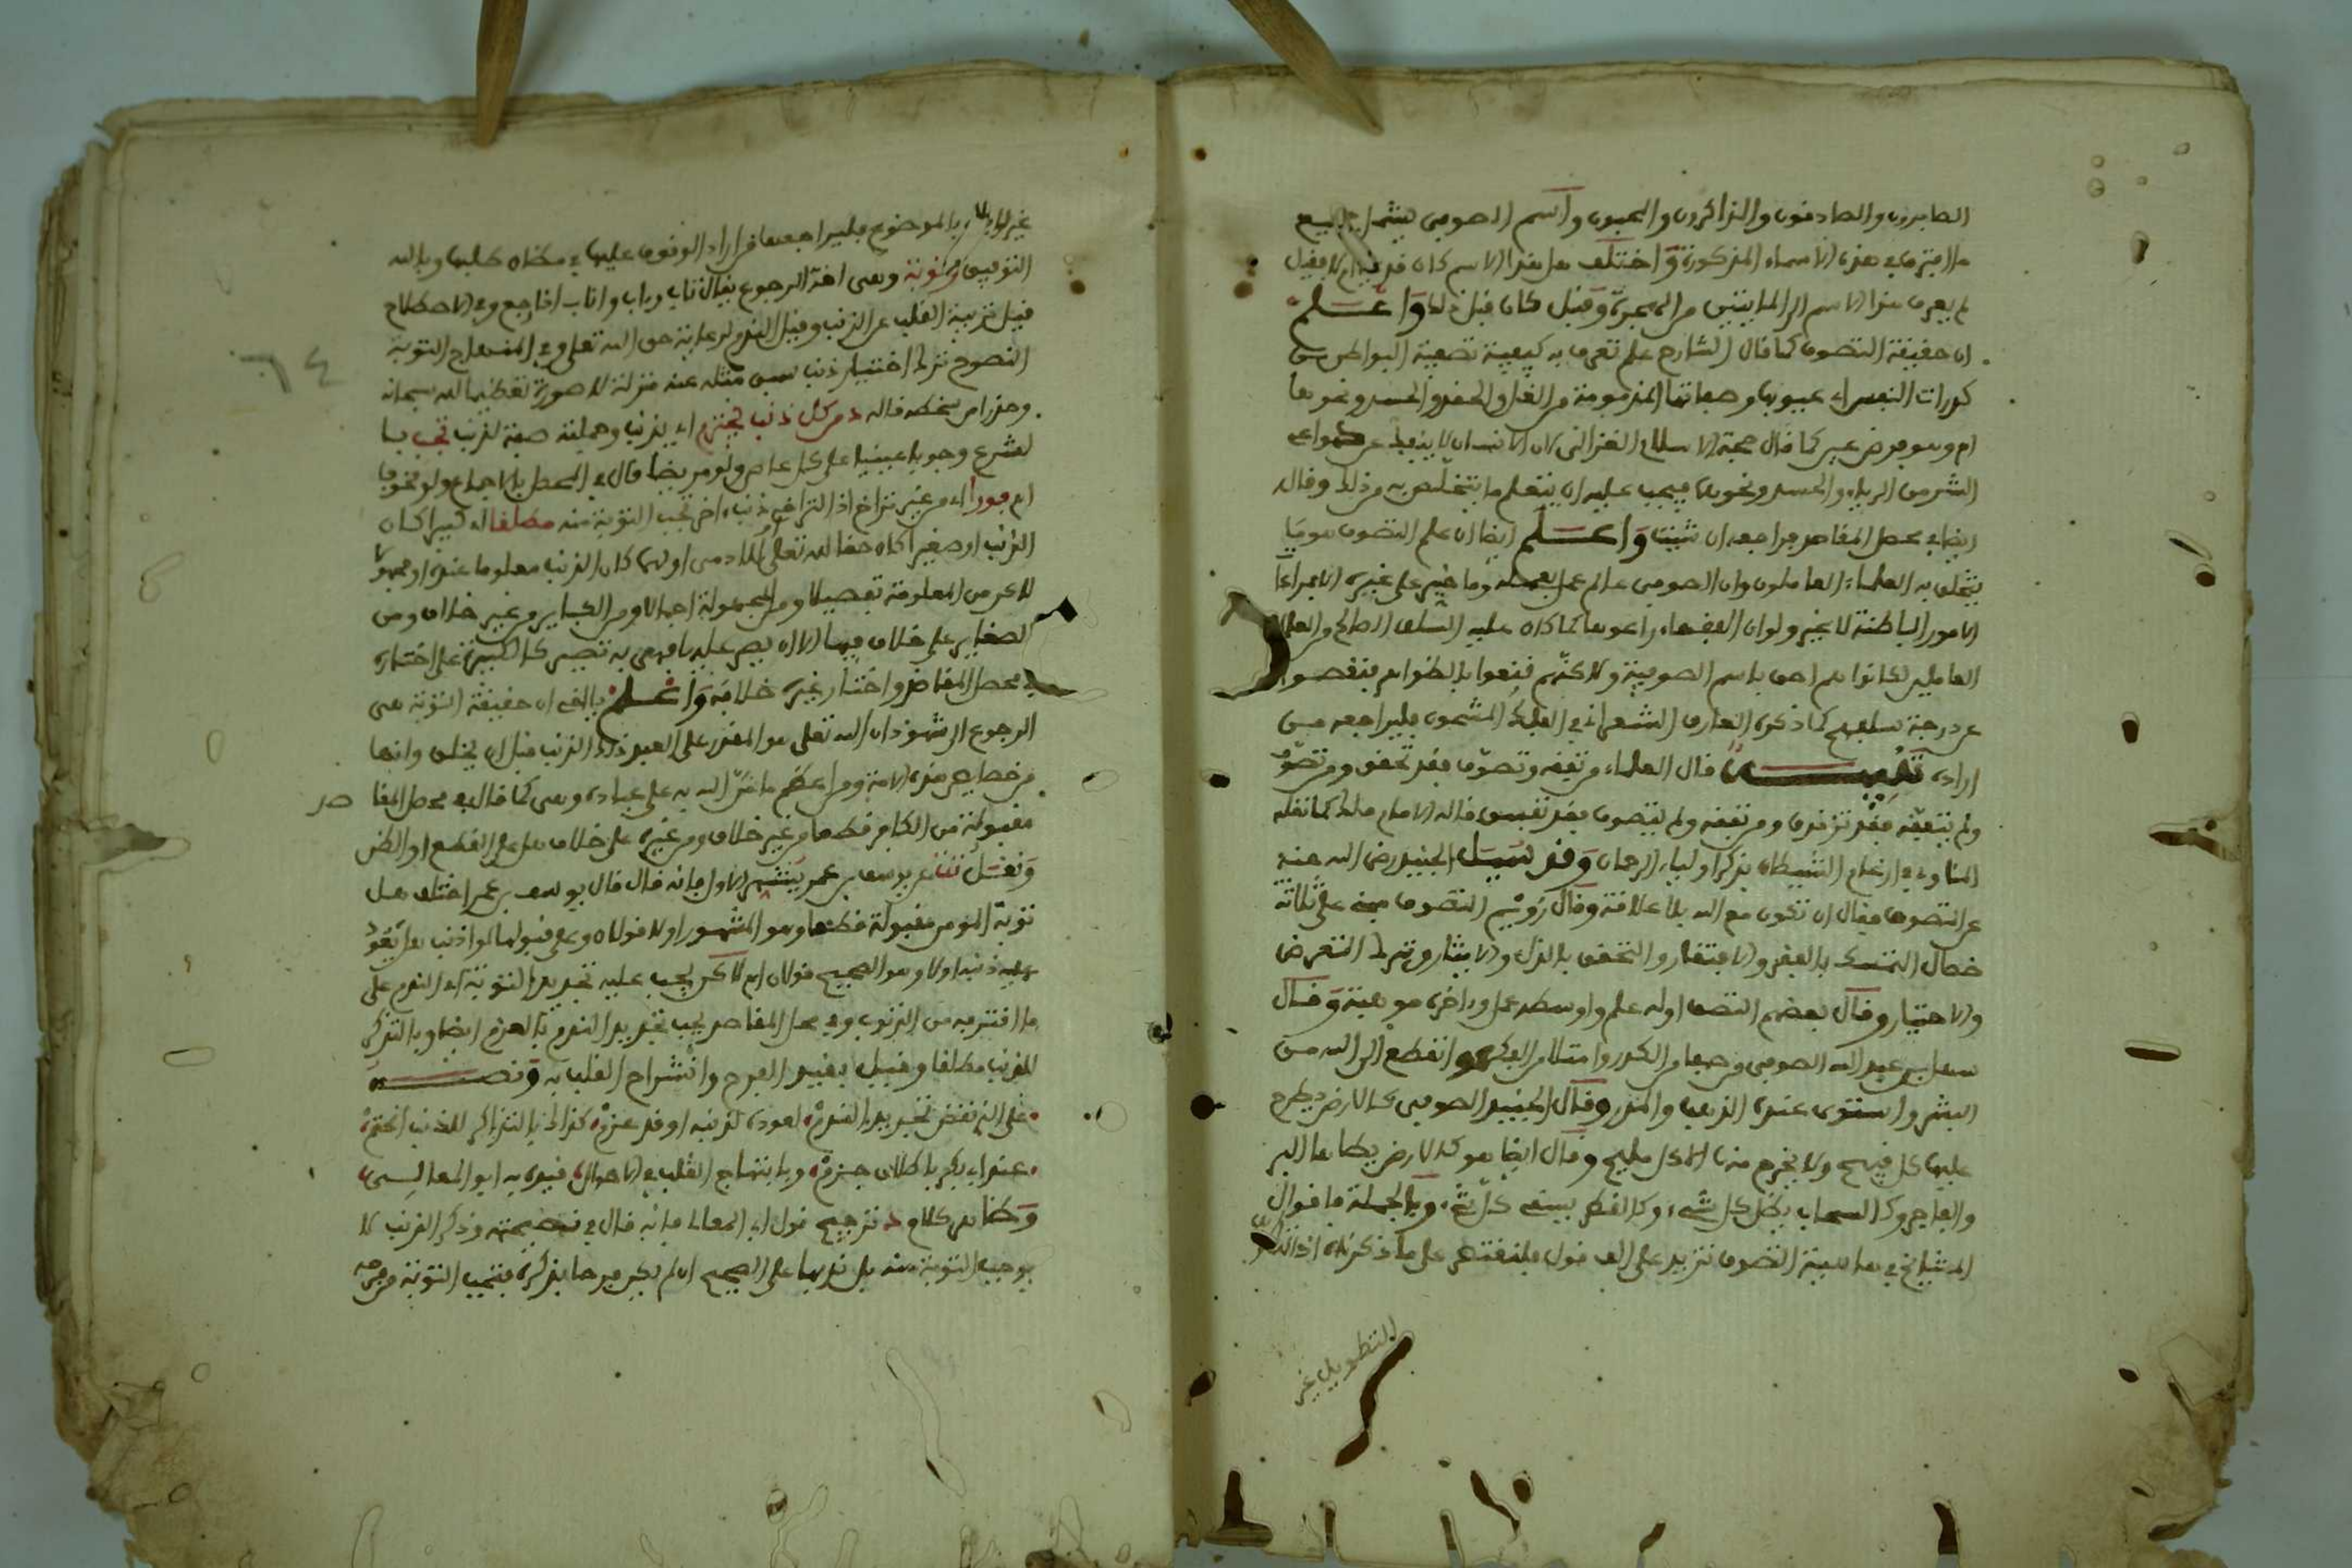 الصابرون والصادقون والذاكرون والمحبون واسم الصوفي يشمل جميع
ما افترق في هذه الاسماء المذكورة واختلف هل هذا الاسم كان قديما ام لا فقيل
لم يعرف هذا الاسم الى المايتين من الهجرة وقيل كان قبل ذلك واعلم
ان حقيقة التصوف كما قال الشارح علم تعرف به كيفية تصفية البواطن من
كدرات النفس اي عيوبها وصفاتها المذمومة من الغل والحقد والحسد ونحوها
ام وهو فرض عين كما قال حجة الاسلام الغزالي لان الانسان لا ينفك عن دواعي
الشر من الرياء والحسد ونحوها فيجب عليه ان يتعلم ما يتخلص به من ذلك وقال
ايضا في محصل المقاصد فراجعه ان شيت واعلم ايضا ان علم التصوف هو ما
يتخلق به العلماء العاملون وان الصوفي عالم عمل بعلمه وما خير على غيره الا بمراعاة
الامور الباطنة لا غير ولو ان الفقهاء راعوها كما كان عليه السلف الصالح والعلماء
العاملين لكانوا هم احق باسم الصوفية ولاكنهم قنعوا بالظواهر فنقصوا
عن درجة سلفهم كما ذكره العارف الشعراني في الفلك المشحون فليراجعه من
اراده تنبيه قال العلماء من تفقه وتصوف فقد تحقق ومن تصوف
ولم يتفقه فقد تزندق ومن تفقه ولم يتصوف فقد تفسق قاله الامام مالك كما نقله
المناوي في ارغام الشيطان بذكر اولياء الرحمان وقد سيل الجنيد رضي الله عنه
عن التصوف فقال ان تكون مع الله بلا علاقة وقال رويم التصوف مبني على ثلاثة
خصال التمسك بالفقر والافتقار والتحقق بالبذل والايثار وترك التعرض
والاختيار وقال بعضهم التصوف اوله علم واوسطه عمل واخره موهبة وقال
سهل بن عبد الله الصوفي من صفا من الكدر وامتلا من الفكر وانقطع الى الله من
البشر واستوى عنده الذهب والمدر وقال الجنيد الصوفي كالارض يطرح
عليها كل قبيح ولا يخرج منها الا كل مليح وقال ايضا هو كالارض يطاها البر
والفاجر وكالسحاب يظل كل شيء وكالقطر يسقي كل شيء وبالجملة فاقوال
المشايخ في ماهية التصوف تزيد على الف قول فلنقتصر على ما ذكرناه اذ
التطويل غير
غير لايق بالموضوع فليراجعها من اراد الوقوف عليها في مظانه كلها وبالله
التوفيق وتوبة وهي لغة الرجوع يقال تاب وءاب واناب اذا رجع وفي الاصطلاح
قيل تزيية القلب عن الذنب وقيل الندم لرعاية حق الله تعلى وفي المنهاج التوبة
النصوح ترك اختيار ذنب سبق مثله عنه منزلة لا صورة تعظيما لله سبحانه
وحذرا من سخطه قاله من كل ذنب يجترم اي يذنب وجملته صفة لذنب تجب بـا
لشرع وجوبا عينيا على كل عاص ولو مريضا قال في المحصل بالاجماع ولو نحوها
ام فورا اي من غير تراخ اذ التراخي ذنب اخر تجب التوبة منه مطلقا اي كبيرا كان
الذنب او صغيرا كان حقا لله تعلى او لادمي او لهما كان الذنب معلوما عنده او مجهولا
لاكن من المعلومة تفصيلا ومن المجهولة اجمالا ومن الكباير من غير خلاف ومن
الصغاير على خلاف فيها الا ان يصر عليها فهي به تصير كالكبيرة على اختاره
في محصل المقاصد واختار غيره خلافه واعلم يا اخي ان حقيقة التوبة هي
الرجوع الى شهود ان الله تعلى هو المقدر على العبد ذلك الذنب قبل ان يخلق وانها
من خصايص هذه الامة ومن اعظم ما من الله به على عباده وهي كما قال في محصل المقا صد
مقبولة من الكافر قطعا من غير خلاف ومن غيره على خلاف هل على القطع او الظن
ونقل عن يوسف بن عمر الاول فانه قال قال يوسف بن عمر اختلف هل
توبة المومن مقبولة قطعا وهو المشهور او لا قولان وعلى قبولها لو اذنب هل تعود
عليه ذنبه او لا وهو الصحيح قولان ام لاكن يجب عليه تجديد التوبة اي الندم على
ما اقترفه من الذنوب وفي محصل المقاصد يجب تجديد الندم بالعزم ايضا وبالتذكر
للذنب مطلقا وقيل بقيد الفرح وانشراح القلب به ونصه
على الذي نقض تجديد الندم لعوده لذنبه او قد عزم كذا لذا بالتذاكر للذنب انحتم
عند ابي بكر باطلاق جزم وبابتهاج القلب في الاحوال قيده به ابو المعالي
وظاهر كلامه ترجيح قول ابي المعالي فانه قال في نصيحته وذكر الذنب لا
يوجب التوبة منه بل ندبها على الصحيح ان لم يكن فرحا بذكره فتجب التوبة من فرحه